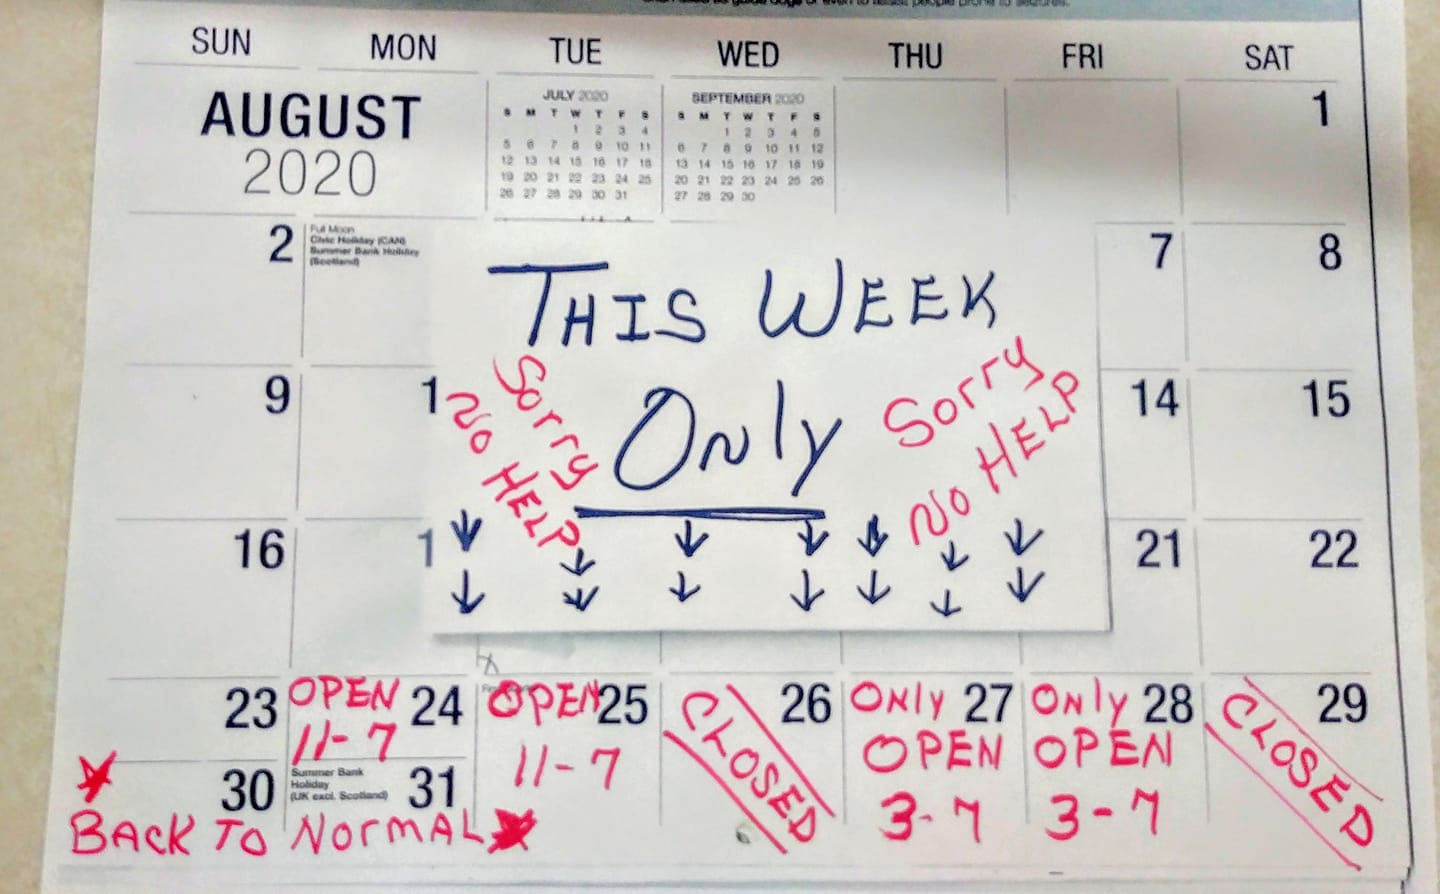 SUN MON TUE WED THU FRI SAT
AUGUST
2020
JULY 2020
S M T W T F S
1 2 3 4
5 6 7 8 9 10 11
12 13 14 15 16 17 18
19 20 21 22 23 24 25
26 27 28 29 30 31
SEPTEMBER 2020
S M T W T F S
1 2 3 4 5
6 7 8 9 10 11 12
13 14 15 16 17 18 19
20 21 22 23 24 25 26
27 28 29 30
1
2
Full Moon
Civic Holiday (CAN)
Summer Bank Holiday
(Scotland)
7
8
THIS WEEK
ONly
Sorry
No HELP
Sorry
No HELP
9
1
14
15
16
1
21
22
23
OPEN 24
11-7
OPEN 25
11-7
26
CLOSED
ONly 27
OPEN
3-7
ONly 28
OPEN
3-7
29
CLOSED
30
Summer Bank
Holiday
(UK excl. Scotland)
31
BACK TO NORMAL